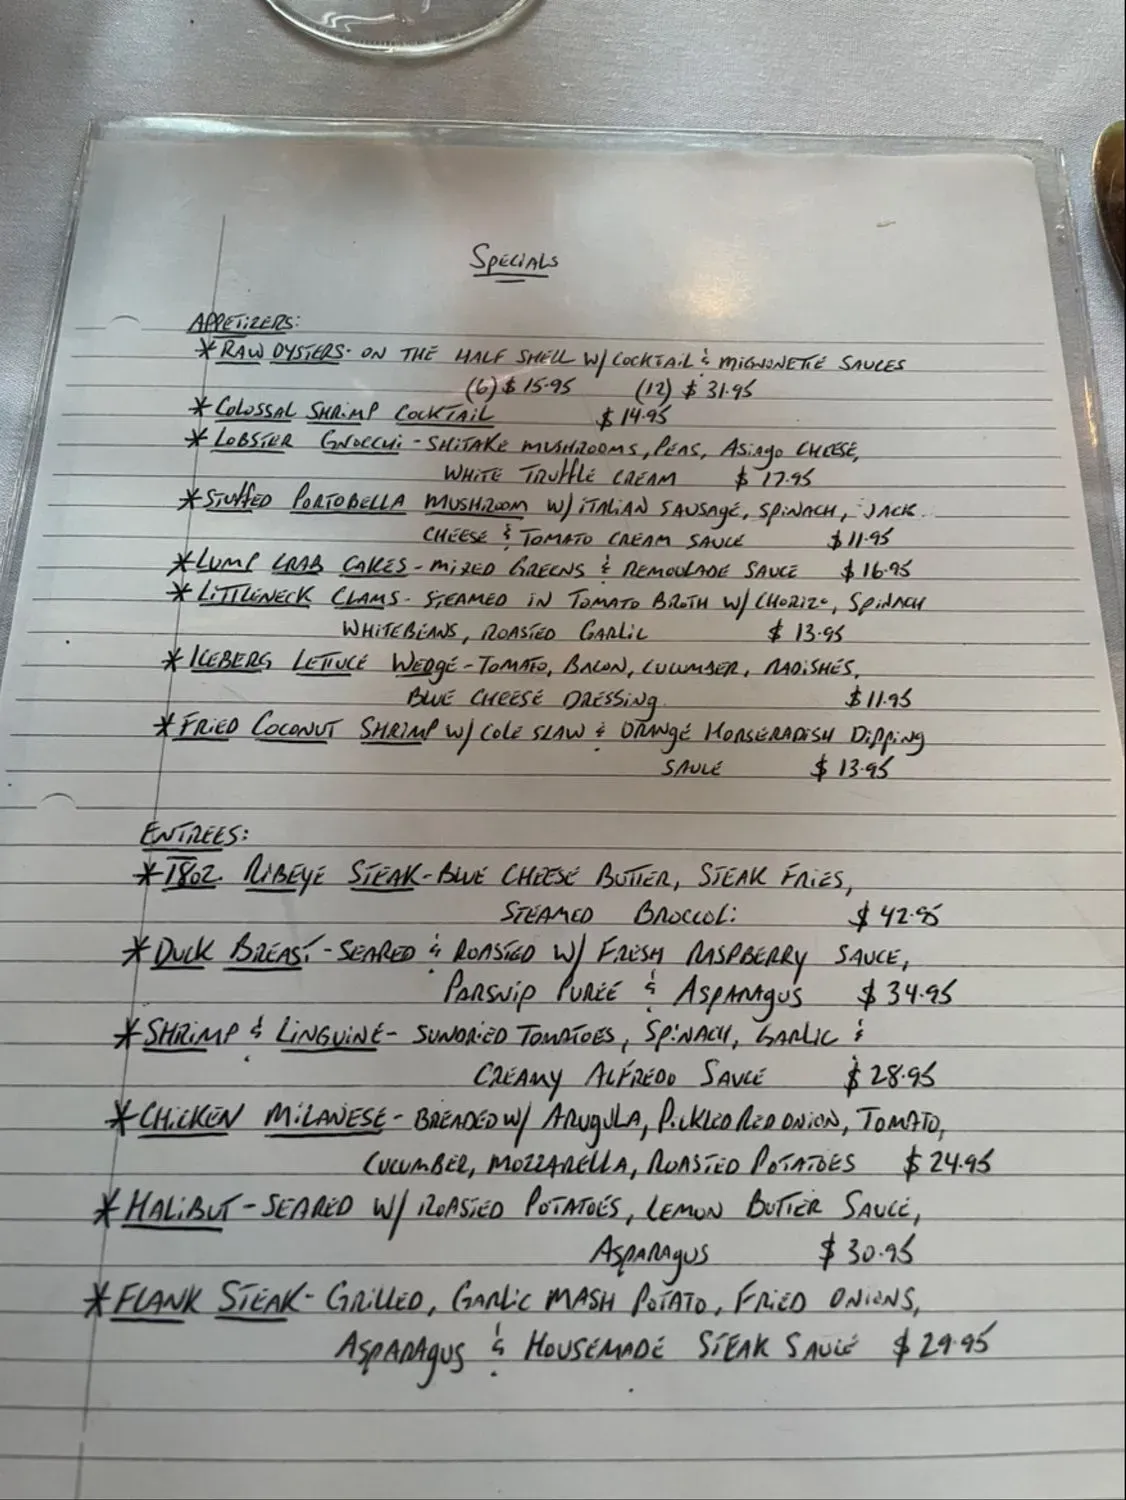 SPECIALS
APPETIZERS:
* RAW OYSTERS- ON THE HALF SHELL W/ COCKTAIL & MIGNONETTE SAUCES
(6) $ 15.95 (12) $ 31.95
* COLOSSAL SHRIMP COCKTAIL $ 14.95
* LOBSTER GNOCCHI - SHITAKE MUSHROOMS, PEAS, ASIAGO CHEESE,
WHITE TRUFFLE CREAM $ 17.95
* STUFFED PORTOBELLA MUSHROOM W/ ITALIAN SAUSAGE, SPINACH, JACK
CHEESE & TOMATO CREAM SAUCE $ 11.95
* LUMP CRAB CAKES - MIXED GREENS & REMOULADE SAUCE $ 16.95
* LITTLENECK CLAMS - STEAMED IN TOMATO BROTH W/ CHORIZO, SPINACH
WHITE BEANS, ROASTED GARLIC $ 13.95
* ICEBERG LETTUCE WEDGE - TOMATO, BACON, CUCUMBER, RADISHES,
BLUE CHEESE DRESSING $ 11.95
* FRIED COCONUT SHRIMP W/ COLE SLAW & ORANGE HORSERADISH DIPPING
SAUCE $ 13.95
ENTREES:
* 18oz. RIBEYE STEAK - BLUE CHEESE BUTTER, STEAK FRIES,
STEAMED BROCCOLI $ 42.95
* DUCK BREAST - SEARED & ROASTED W/ FRESH RASPBERRY SAUCE,
PARSNIP PUREE & ASPARAGUS $ 34.95
* SHRIMP & LINGUINE - SUNDRIED TOMATOES, SPINACH, GARLIC &
CREAMY ALFREDO SAUCE $ 28.95
* CHICKEN MILANESE - BREADED W/ ARUGULA, PICKLED RED ONION, TOMATO,
CUCUMBER, MOZZARELLA, ROASTED POTATOES $ 24.95
* HALIBUT - SEARED W/ ROASTED POTATOES, LEMON BUTTER SAUCE,
ASPARAGUS $ 30.95
* FLANK STEAK - GRILLED, GARLIC MASH POTATO, FRIED ONIONS,
ASPARAGUS & HOUSEMADE STEAK SAUCE $ 29.95